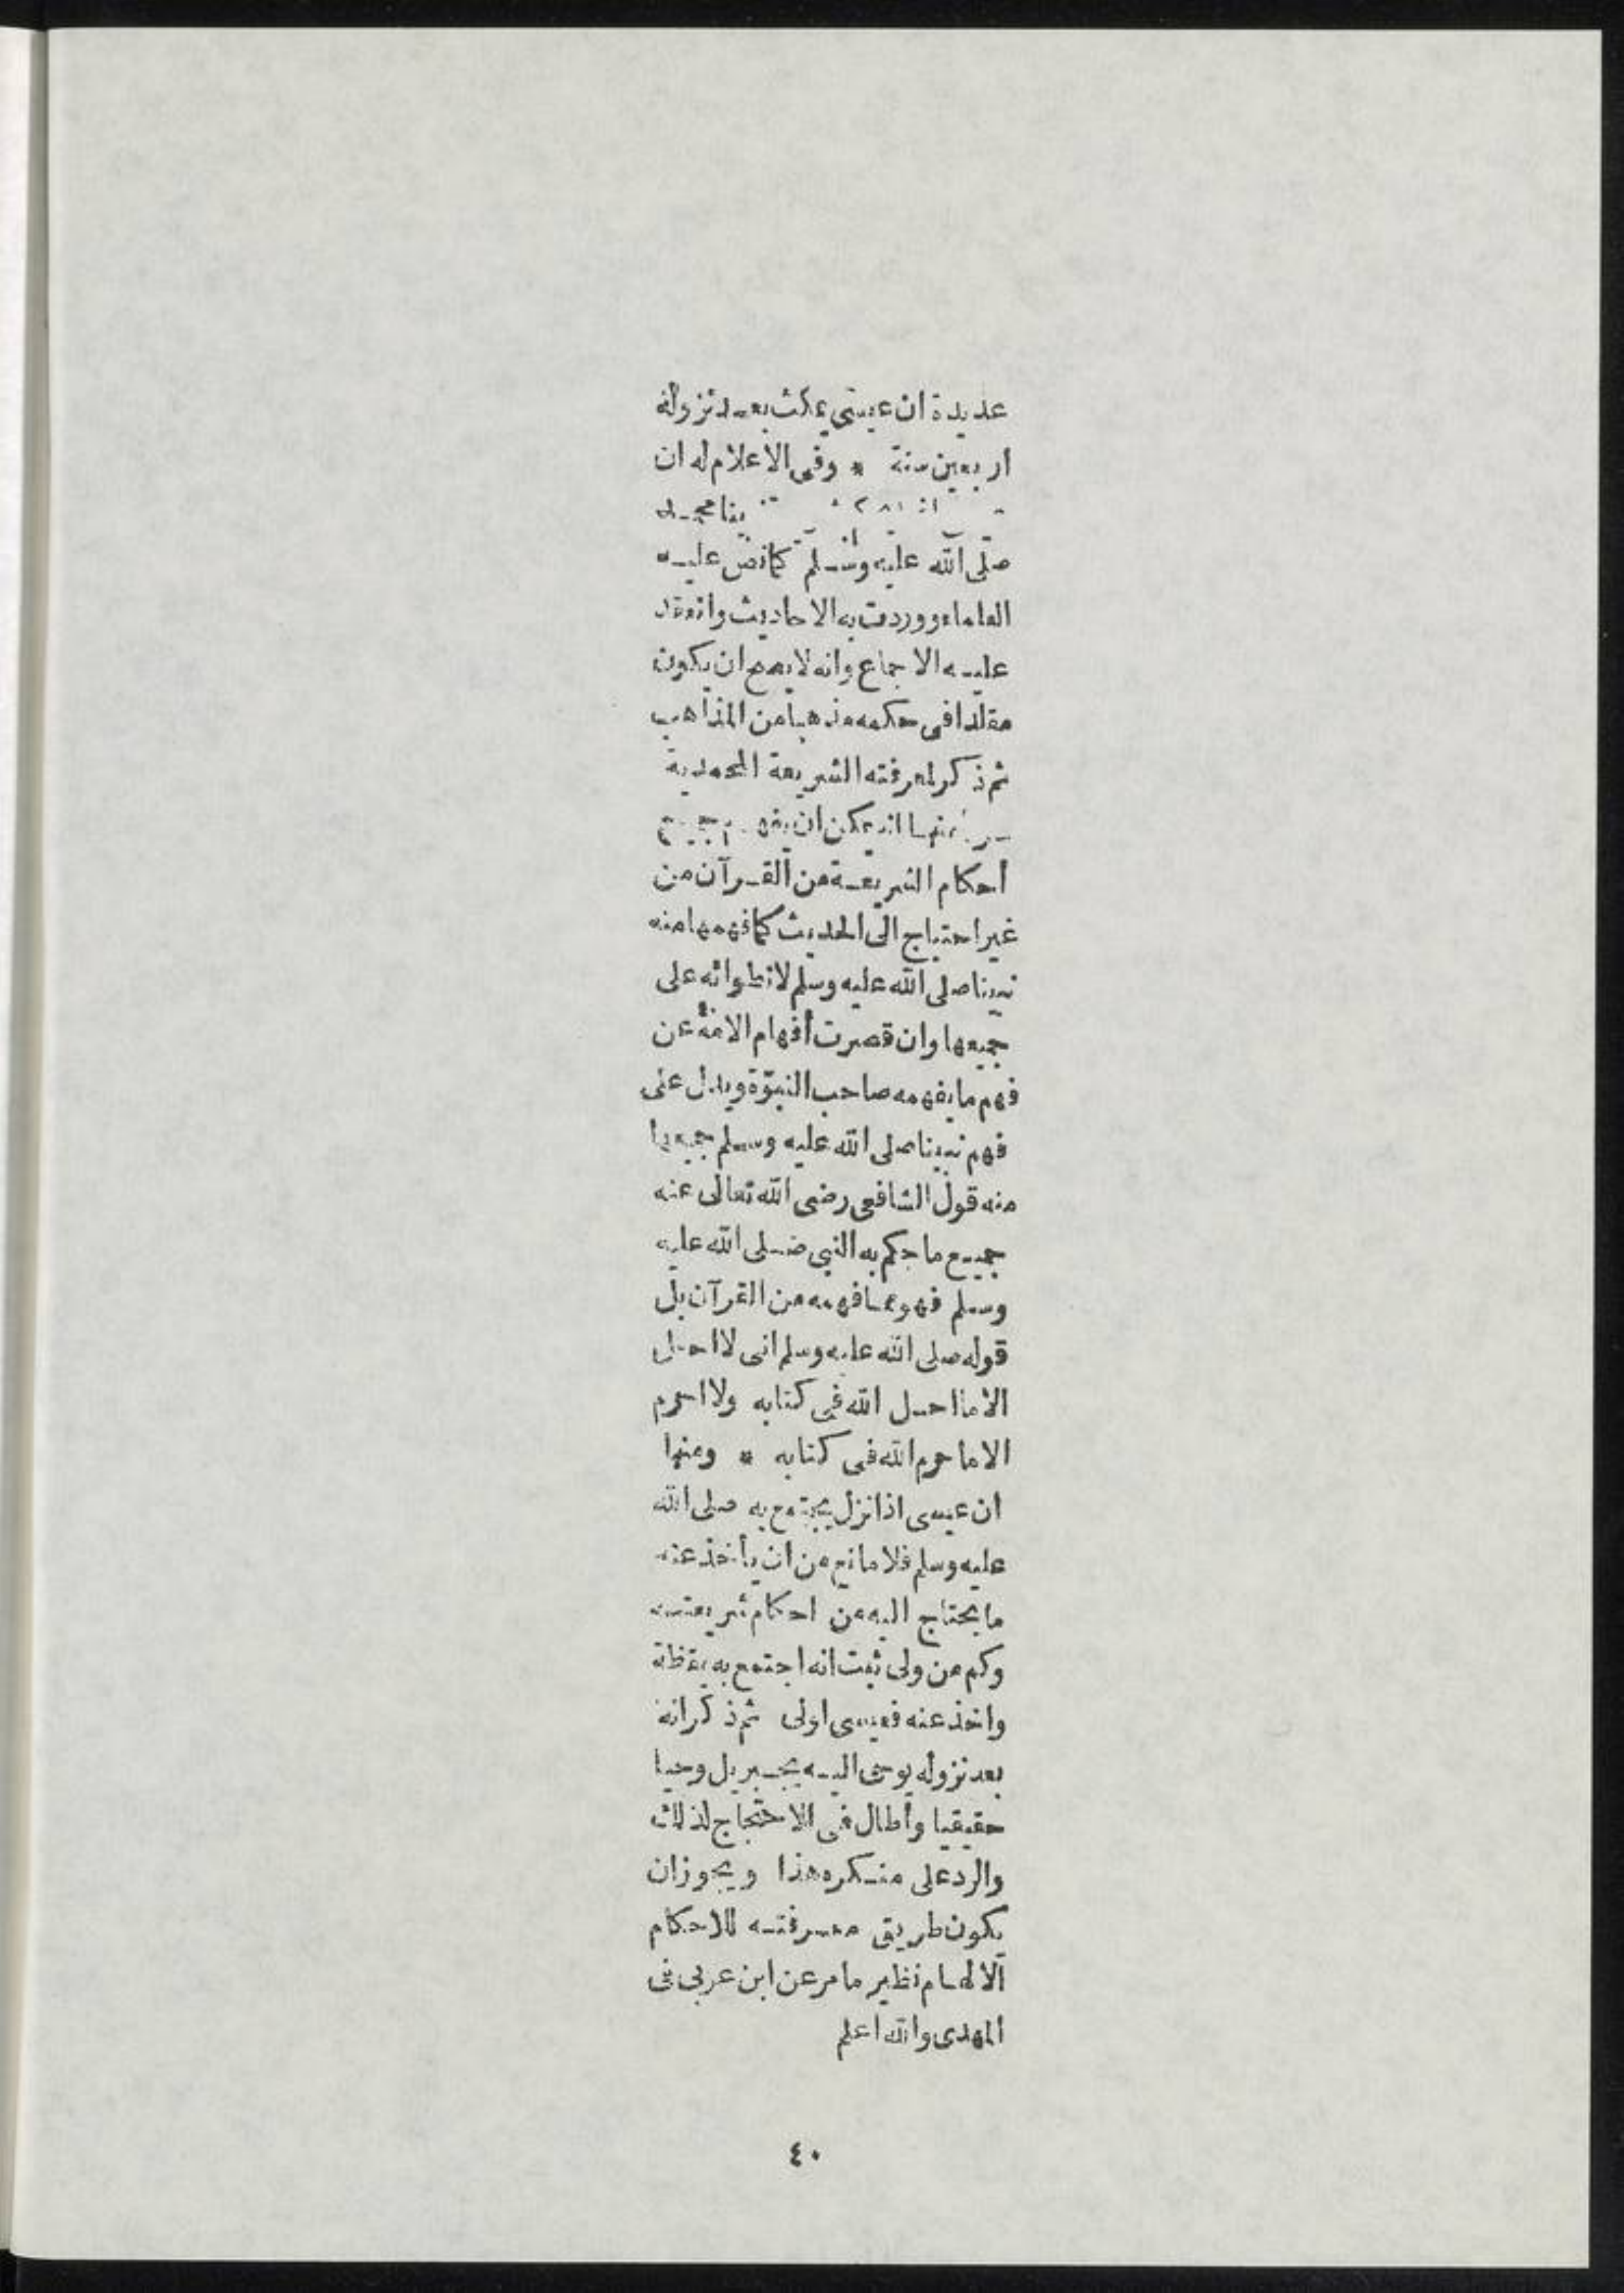 عديدة ان عيسى يمكث بعد نزوله
اربعين سنة * وفى الاعلام له ان
نبينا محمد
صلى الله عليه وسلم كما نص عليه
العلماء ووردت به الاحاديث وانعقد
عليه الاجماع وانه لا يصح ان يكون
مقلدا فى حكمه مذهبا من المذاهب
ثم ذكر لمعرفته الشريعة المحمدية
منها انه يمكن ان يفهم جميع
أحكام الشريعة من القرآن من
غير احتياج الى الحديث كما فهمها منه
نبينا صلى الله عليه وسلم لانطوائه على
جميعها وان قصرت أفهام الامة عن
فهم ما يفهمه صاحب النبوّة ويدل على
فهم نبينا صلى الله عليه وسلم جميعها
منه قول الشافعى رضى الله تعالى عنه
جميع ما حكم به النبى صلى الله عليه
وسلم فهو مما فهمه من القرآن بل
قوله صلى الله عليه وسلم انى لا احل
الا ما احل الله فى كتابه ولا احرم
الا ما حرم الله فى كتابه * ومنها
ان عيسى اذا نزل يجتمع به صلى الله
عليه وسلم فلا مانع من ان يأخذ عنه
ما يحتاج اليه من احكام شريعته
وكم من ولى ثبت انه اجتمع به يقظة
واخذ عنه فعيسى اولى ثم ذكر انه
بعد نزوله يوحى اليه بجبريل وحيا
حقيقيا وأطال فى الاحتجاج لذلك
والرد على منكره هذا ويجوز ان
يكون طريق معرفته للاحكام
الالهام نظير ما مر عن ابن عربى فى
المهدى والله اعلم
٤٠